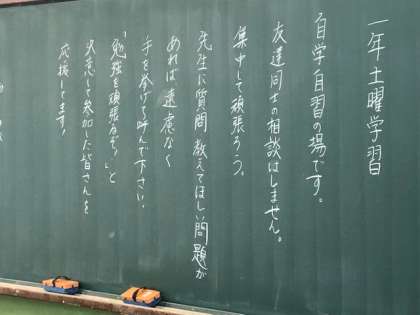 一年土曜学習
自学自習の場です。
友達同士の相談はしません。
集中して頑張ろう。
先生に質問、教えてほしい問題が
あれば遠慮なく
手を挙げて呼んで下さい。
「勉強を頑張るぞ!」と
決意して参加した皆さんを
応援してます!